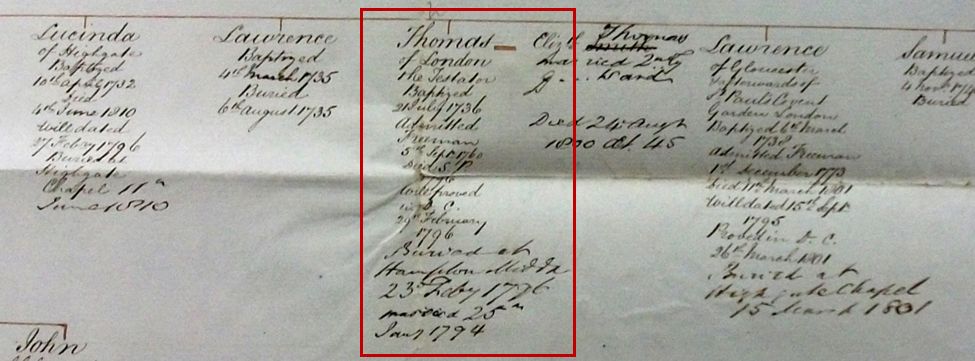 Lucinda
of Highgate
Baptized
10th April 1732
Died
4th June 1810
Will dated
27 Febry 1796
Buried at
Highgate
Chapel 11th
June 1810
Lawrence
Baptized
4th March 1735
Buried
6th August 1735
Thomas
of London
the Testator
Baptized
21 July 1736
Admitted
Freeman
5th Sept 1760
Died S.P.
1796
Will proved
in P. C.
29th February
1796
Buried at
Hampton Middx
23rd Feby 1796
married 25th
Jany 1794
Elizth Thomas
married 2ndly
G... Ward
Died 24 Augt
1800 Æt 45
Lawrence
of Gloucester
afterwards of
St Pauls Covent
Garden London
Baptized 6th March
1738
Admitted Freeman
1st December 1773
Died 11th March 1801
Will dated 15th Sept
1795
Proved in P. C.
26th March 1801
Buried at
Highgate Chapel
15 March 1801
Samuel
Baptized
4 Novr
Buried
John